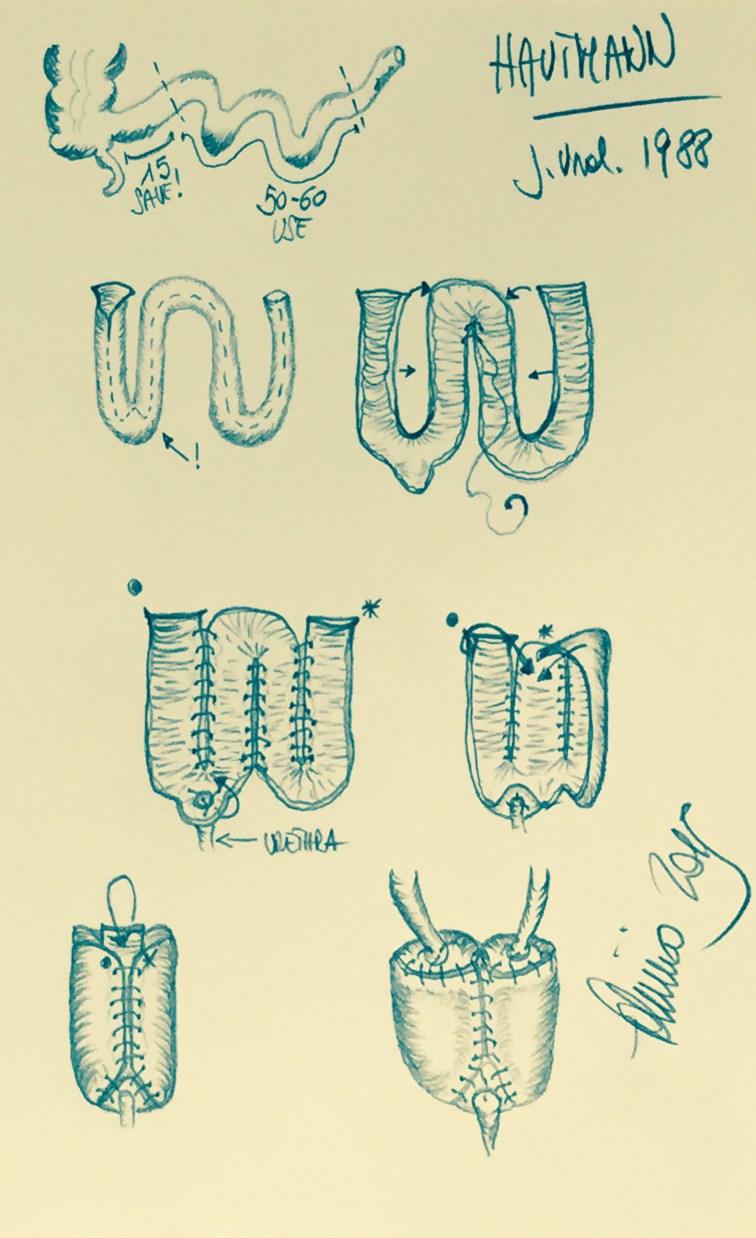 HAUTMANN
J. Urol. 1988
15
SAVE!
50-60
USE
!
*
*
URETHRA
*